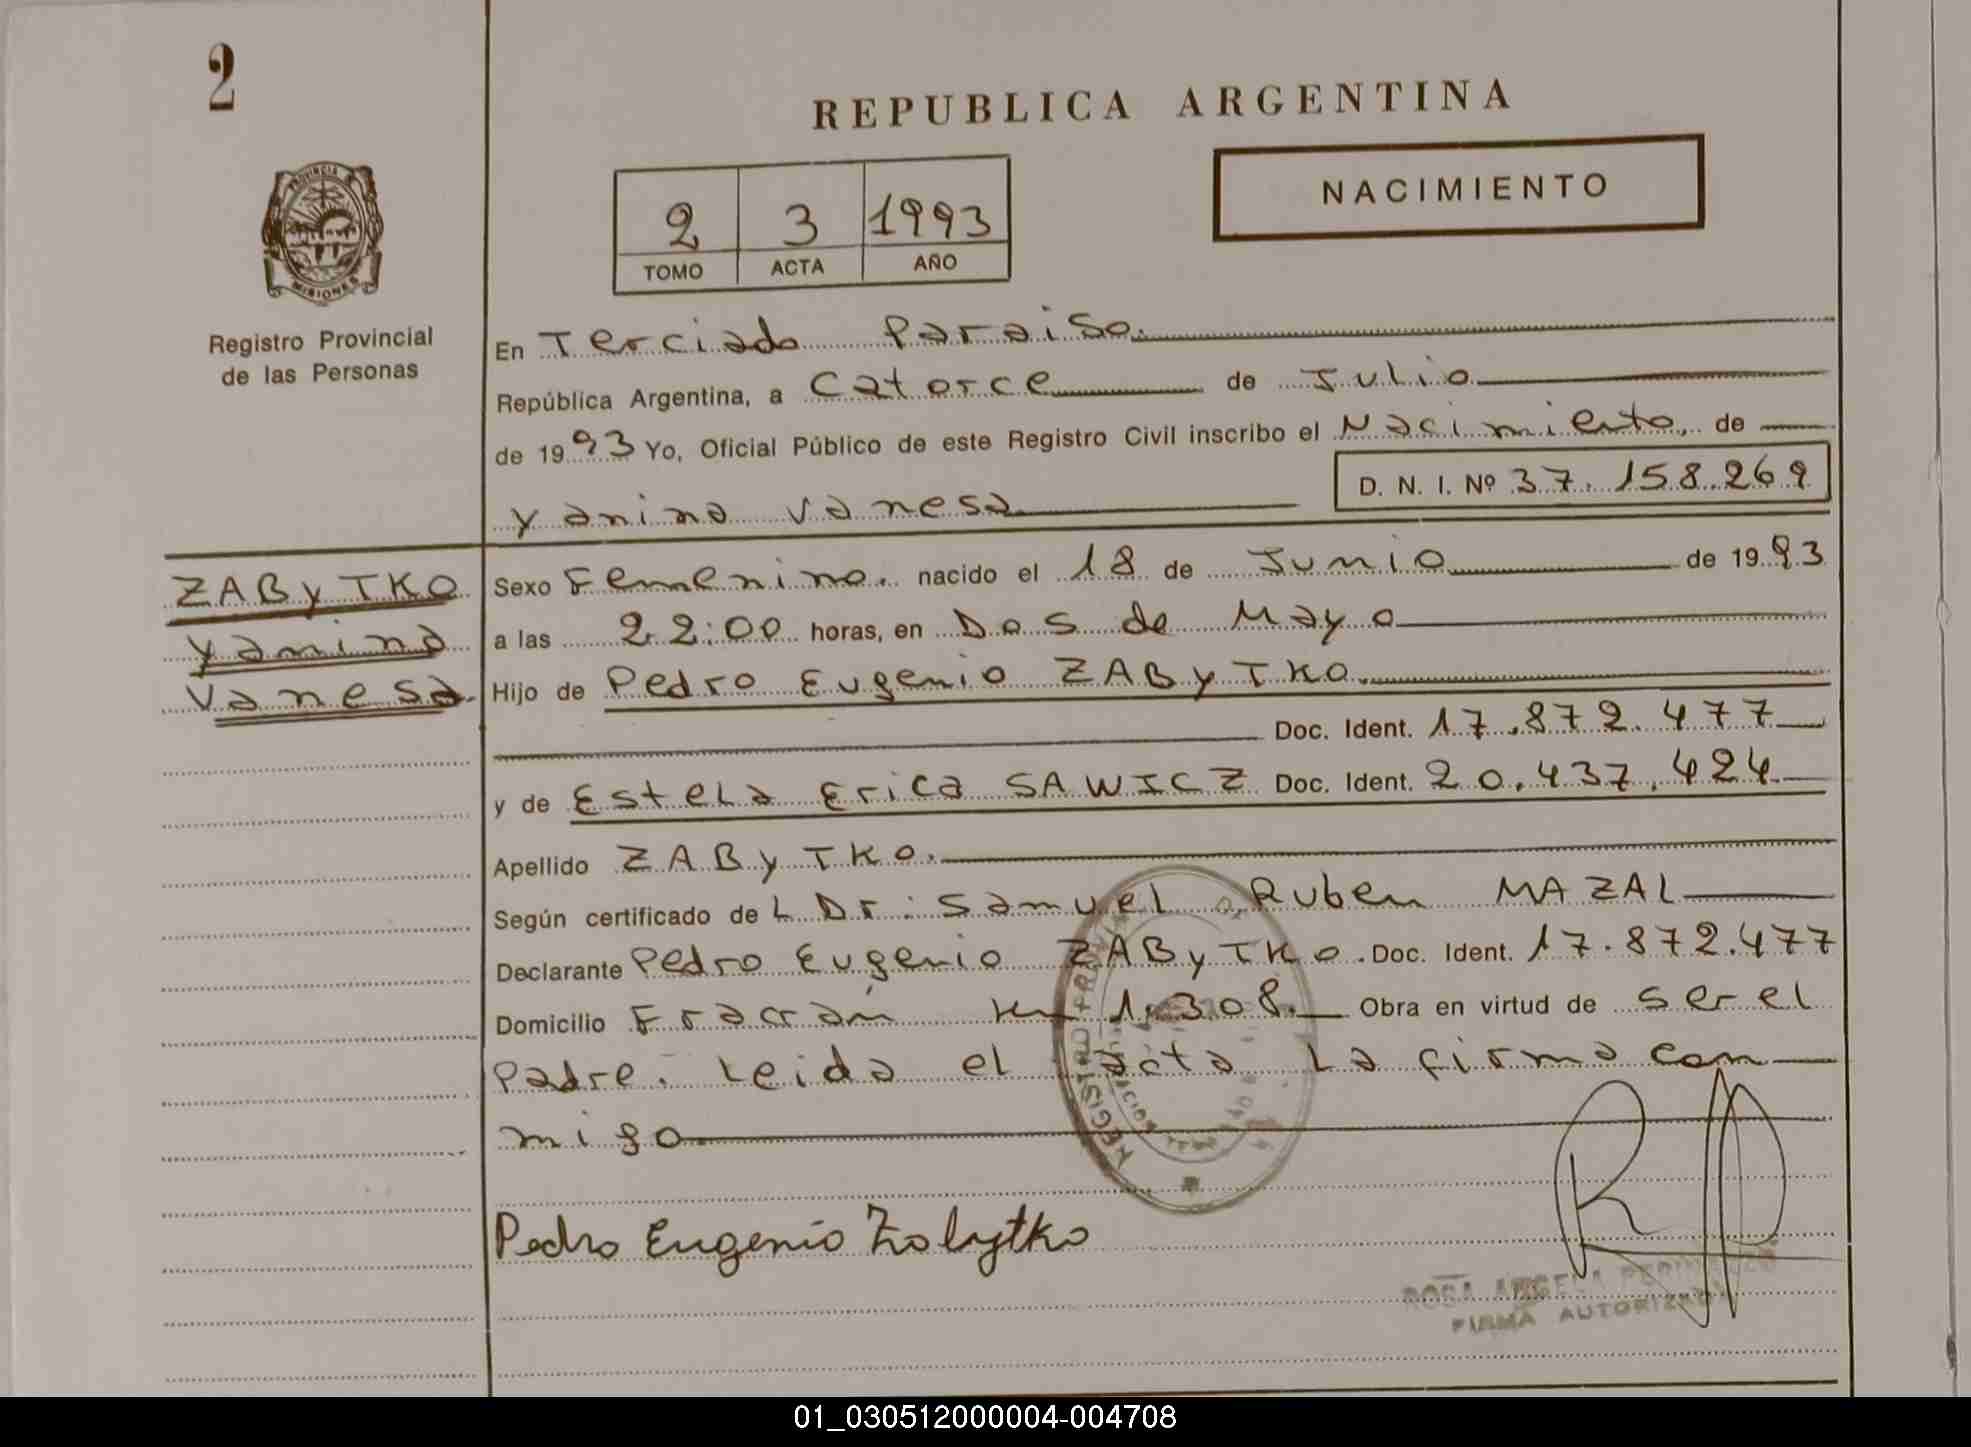 2
REPUBLICA ARGENTINA
NACIMIENTO
2 3 1993
TOMO ACTA AÑO
PROVINCIA
MISIONES
Registro Provincial
de las Personas
En Terciado Paraiso.
República Argentina, a Catorce de Julio
de 1993 Yo, Oficial Público de este Registro Civil inscribo el Nacimiento, de
D. N. I. Nº 37.158.269
Yanina Vanesa
ZABYTKO
Yanina
Vanesa.
Sexo Femenino. nacido el 18 de Junio de 1993
a las 22:00 horas, en Dos de Mayo
Hijo de Pedro Eugenio ZABYTKO.
Doc. Ident. 17.872.477
y de Estela Erica SAWICZ Doc. Ident. 20.437.424
Apellido ZABYTKO.
Según certificado de L Dr: Samuel Ruben MAZAL
Declarante Pedro Eugenio ZABYTKO. Doc. Ident. 17.872.477
Domicilio Fracrán Km 1.308. Obra en virtud de ser el
Padre. Leida el acta La firma con
migo
Pedro Eugenio Zabytko
ROSA ANGELA
FIRMA AUTORIZADA
01_030512000004-004708